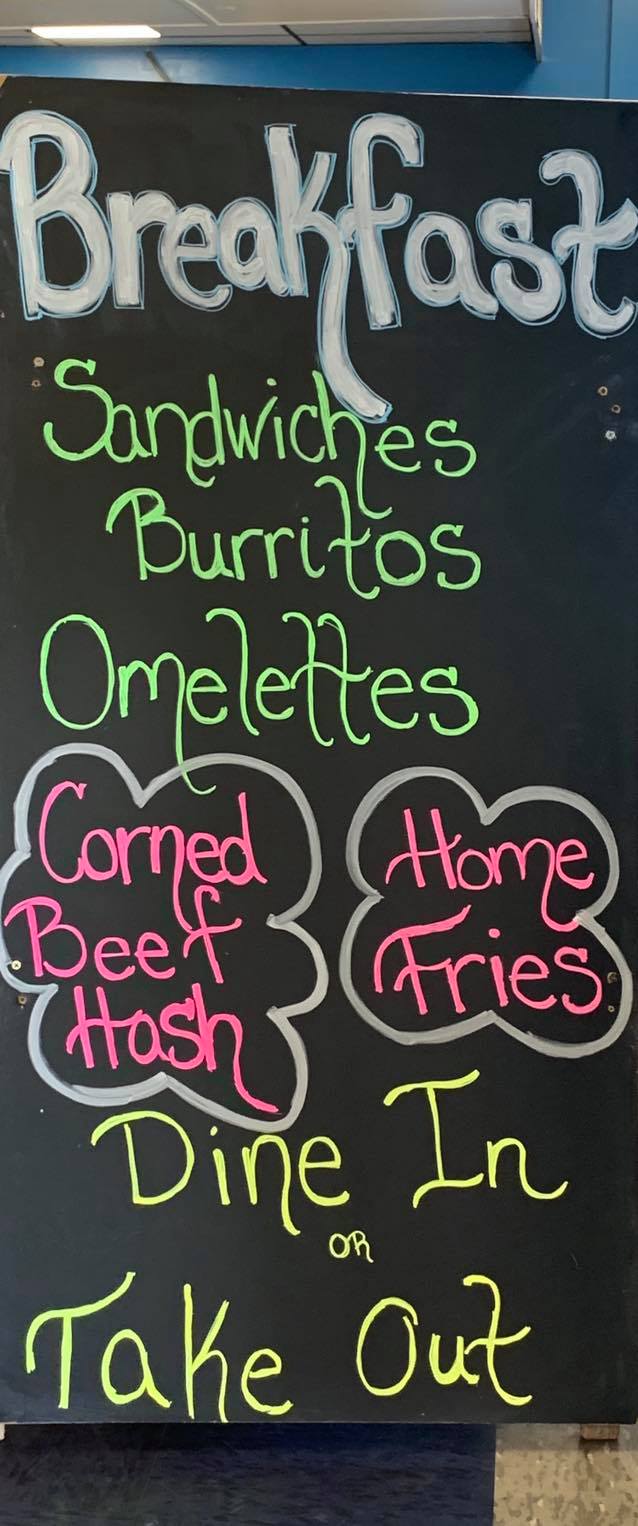 Breakfast
Sandwiches
Burritos
Omelettes
Corned
Beef
Hash
Home
Fries
Dine In
OR
Take Out